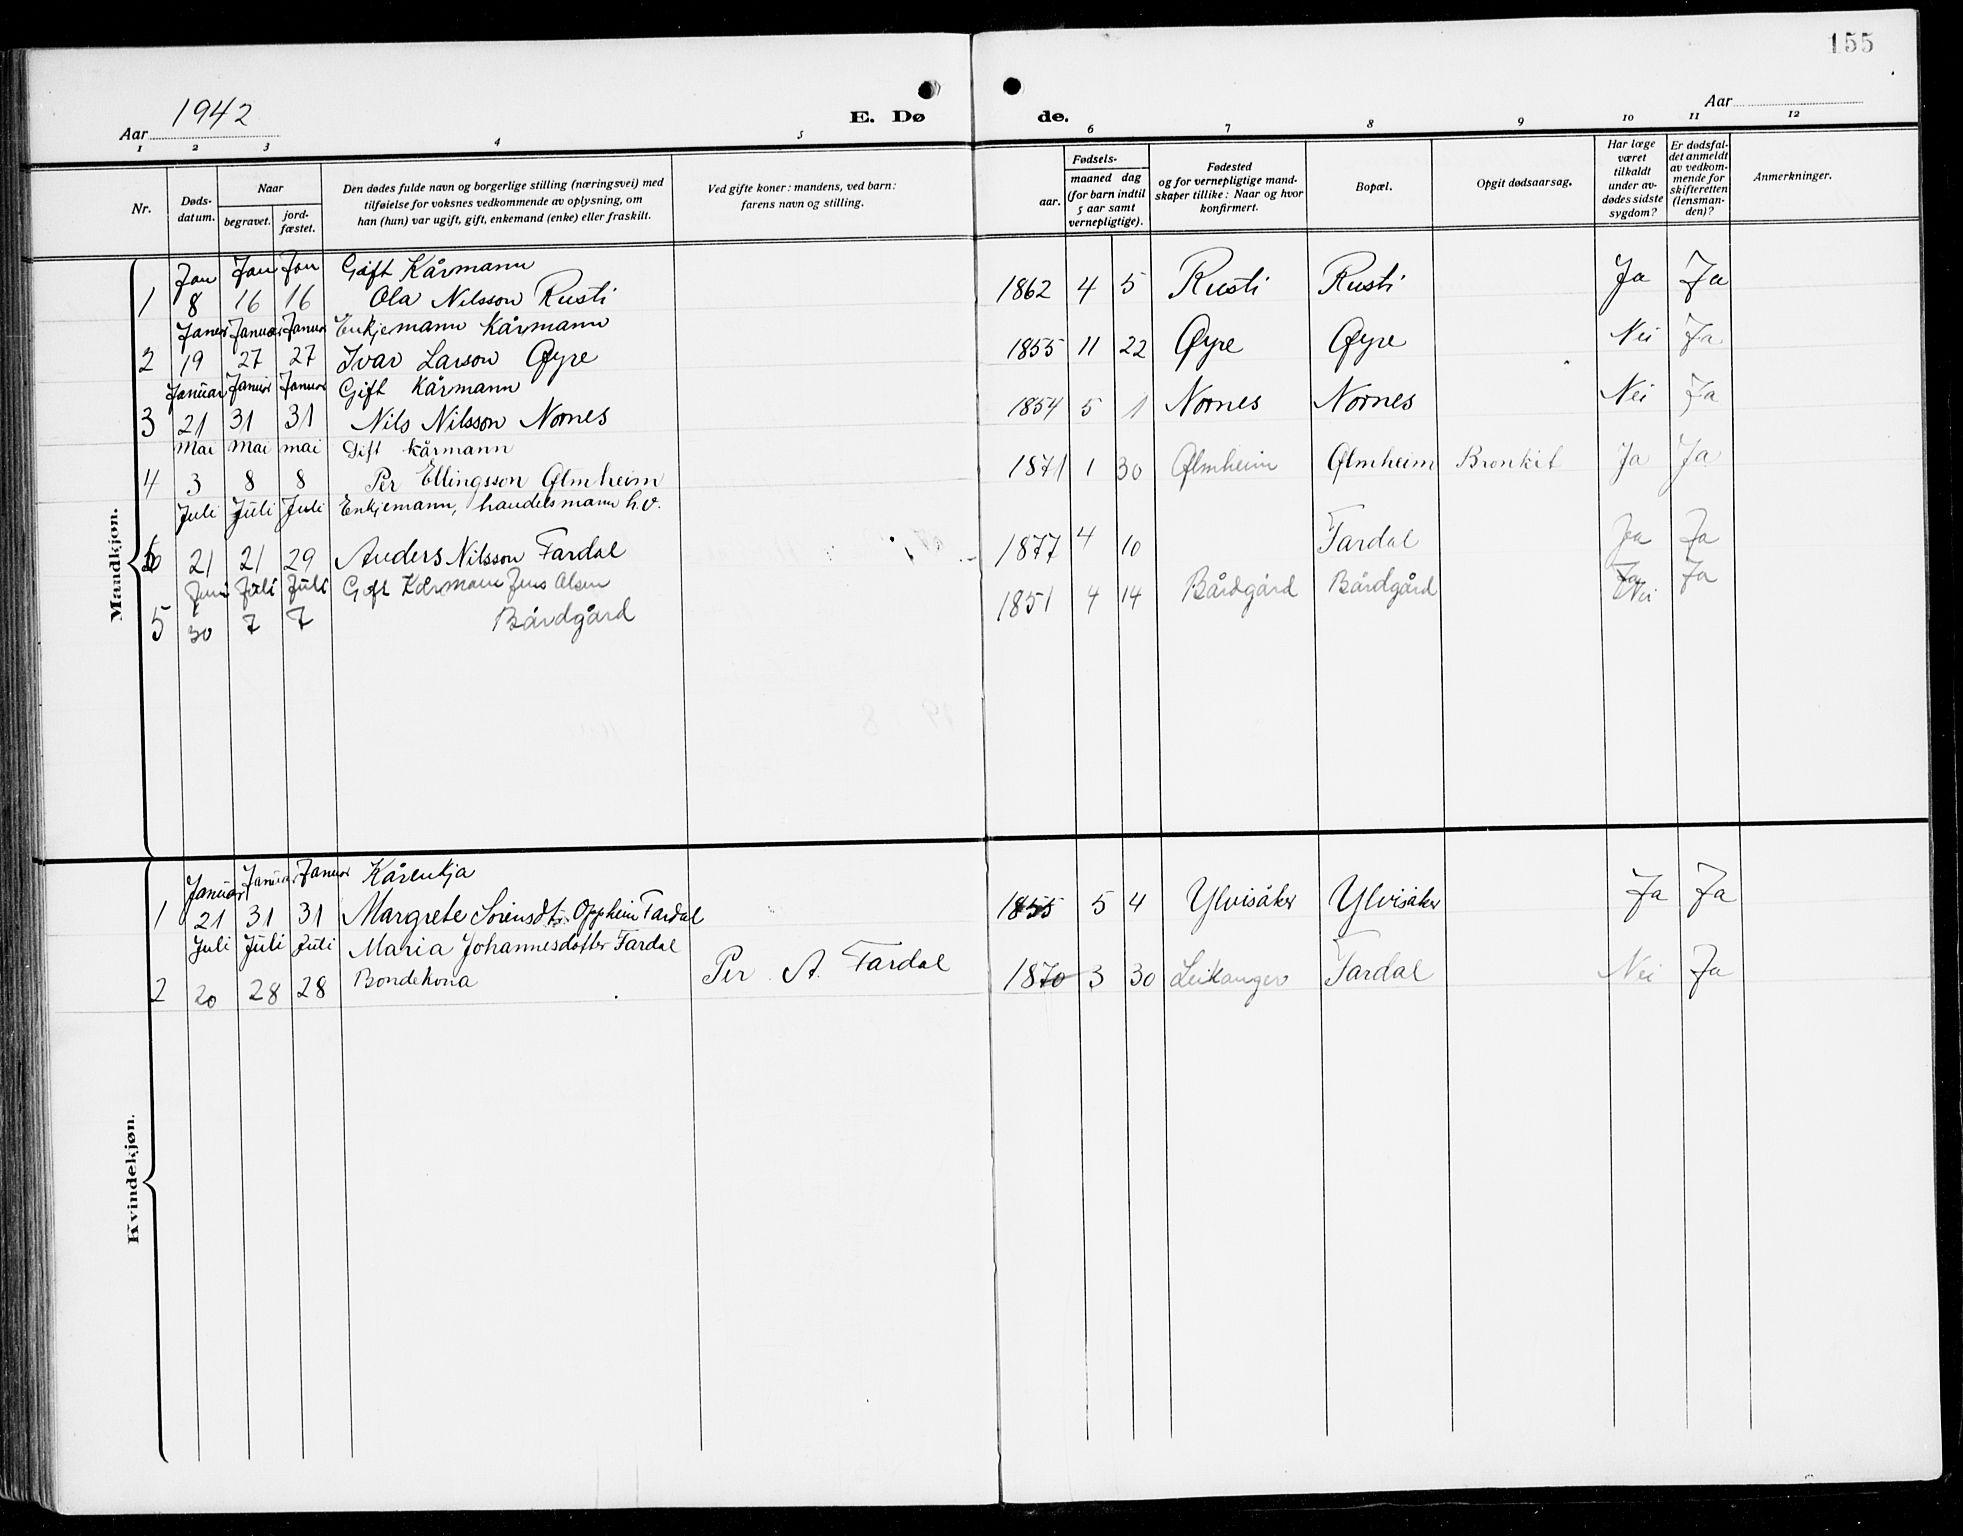 155
Aar 1942
E. Døde.
Aar
1 2 3 4 5 6 7 8 9 10 11 12
Nr.
Døds-
datum.
Naar
begravet.
jord-
fæstet.
Den dødes fulde navn og borgerlige stilling (næringsvei) med
tilføielse for voksnes vedkommende av oplysning, om
han (hun) var ugift, gift, enkemand (enke) eller fraskilt.
Ved gifte koner: mandens, ved barn:
farens navn og stilling.
Fødsels-
aar.
maaned dag
(for barn indtil
5 aar samt
vernepligtige).
Fødested
og for vernepligtige mand-
skaper tillike: Naar og hvor
konfirmert.
Bopæl.
Opgit dødsaarsag.
Har læge
været
tilkaldt
under av-
dødes sidste
sygdom?
Er dødsfal-
det anmeldt
av vedkom-
mende for
skifteretten
(lensman-
den)?
Anmerkninger.
Mandkjøn.
Jan Jan Jan Gift Kårmann
1 8 16 16 Ola Nilsson Rusti 1862 4 5 Rusti Rusti Ja Ja
Januar Januar Januar Enkjemann Kårmann
2 19 27 27 Ivar Larson Øyre 1855 11 22 Øyre Øyre Nei Ja
Januar Januar Januar Gift Kårmann
3 21 31 31 Nils Nilsson Nornes 1854 5 1 Nornes Nornes Nei Ja
Mai Mai mai Gift kårmann
4 3 8 8 Per Ellingsson Ølmheim 1871 1 30 Ølmheim Ølmheim Bronkit Ja Ja
Juli Juli Juli Enkjemann, handelsmann h.v.
6 21 21 29 Anders Nilsson Fardal 1877 4 10 Fardal Ja Ja
Juni Juli Juli Gift Kårmann Jens Olsen
5 30 7 7 Bårdgård 1851 4 14 Bårdgård Bårdgård Nei Ja
Kvindekjøn.
Januar Januar Januar Kårenkja
1 21 31 31 Margrete Sørensdt. Oppheim Fardal 1855 5 4 Ylvisåker Ylvisåker Ja Ja
Juli Juli Juli Maria Johannesdotter Fardal
2 20 28 28 Bondekona Per A. Fardal 1870 3 30 Leikanger Fardal Nei Ja